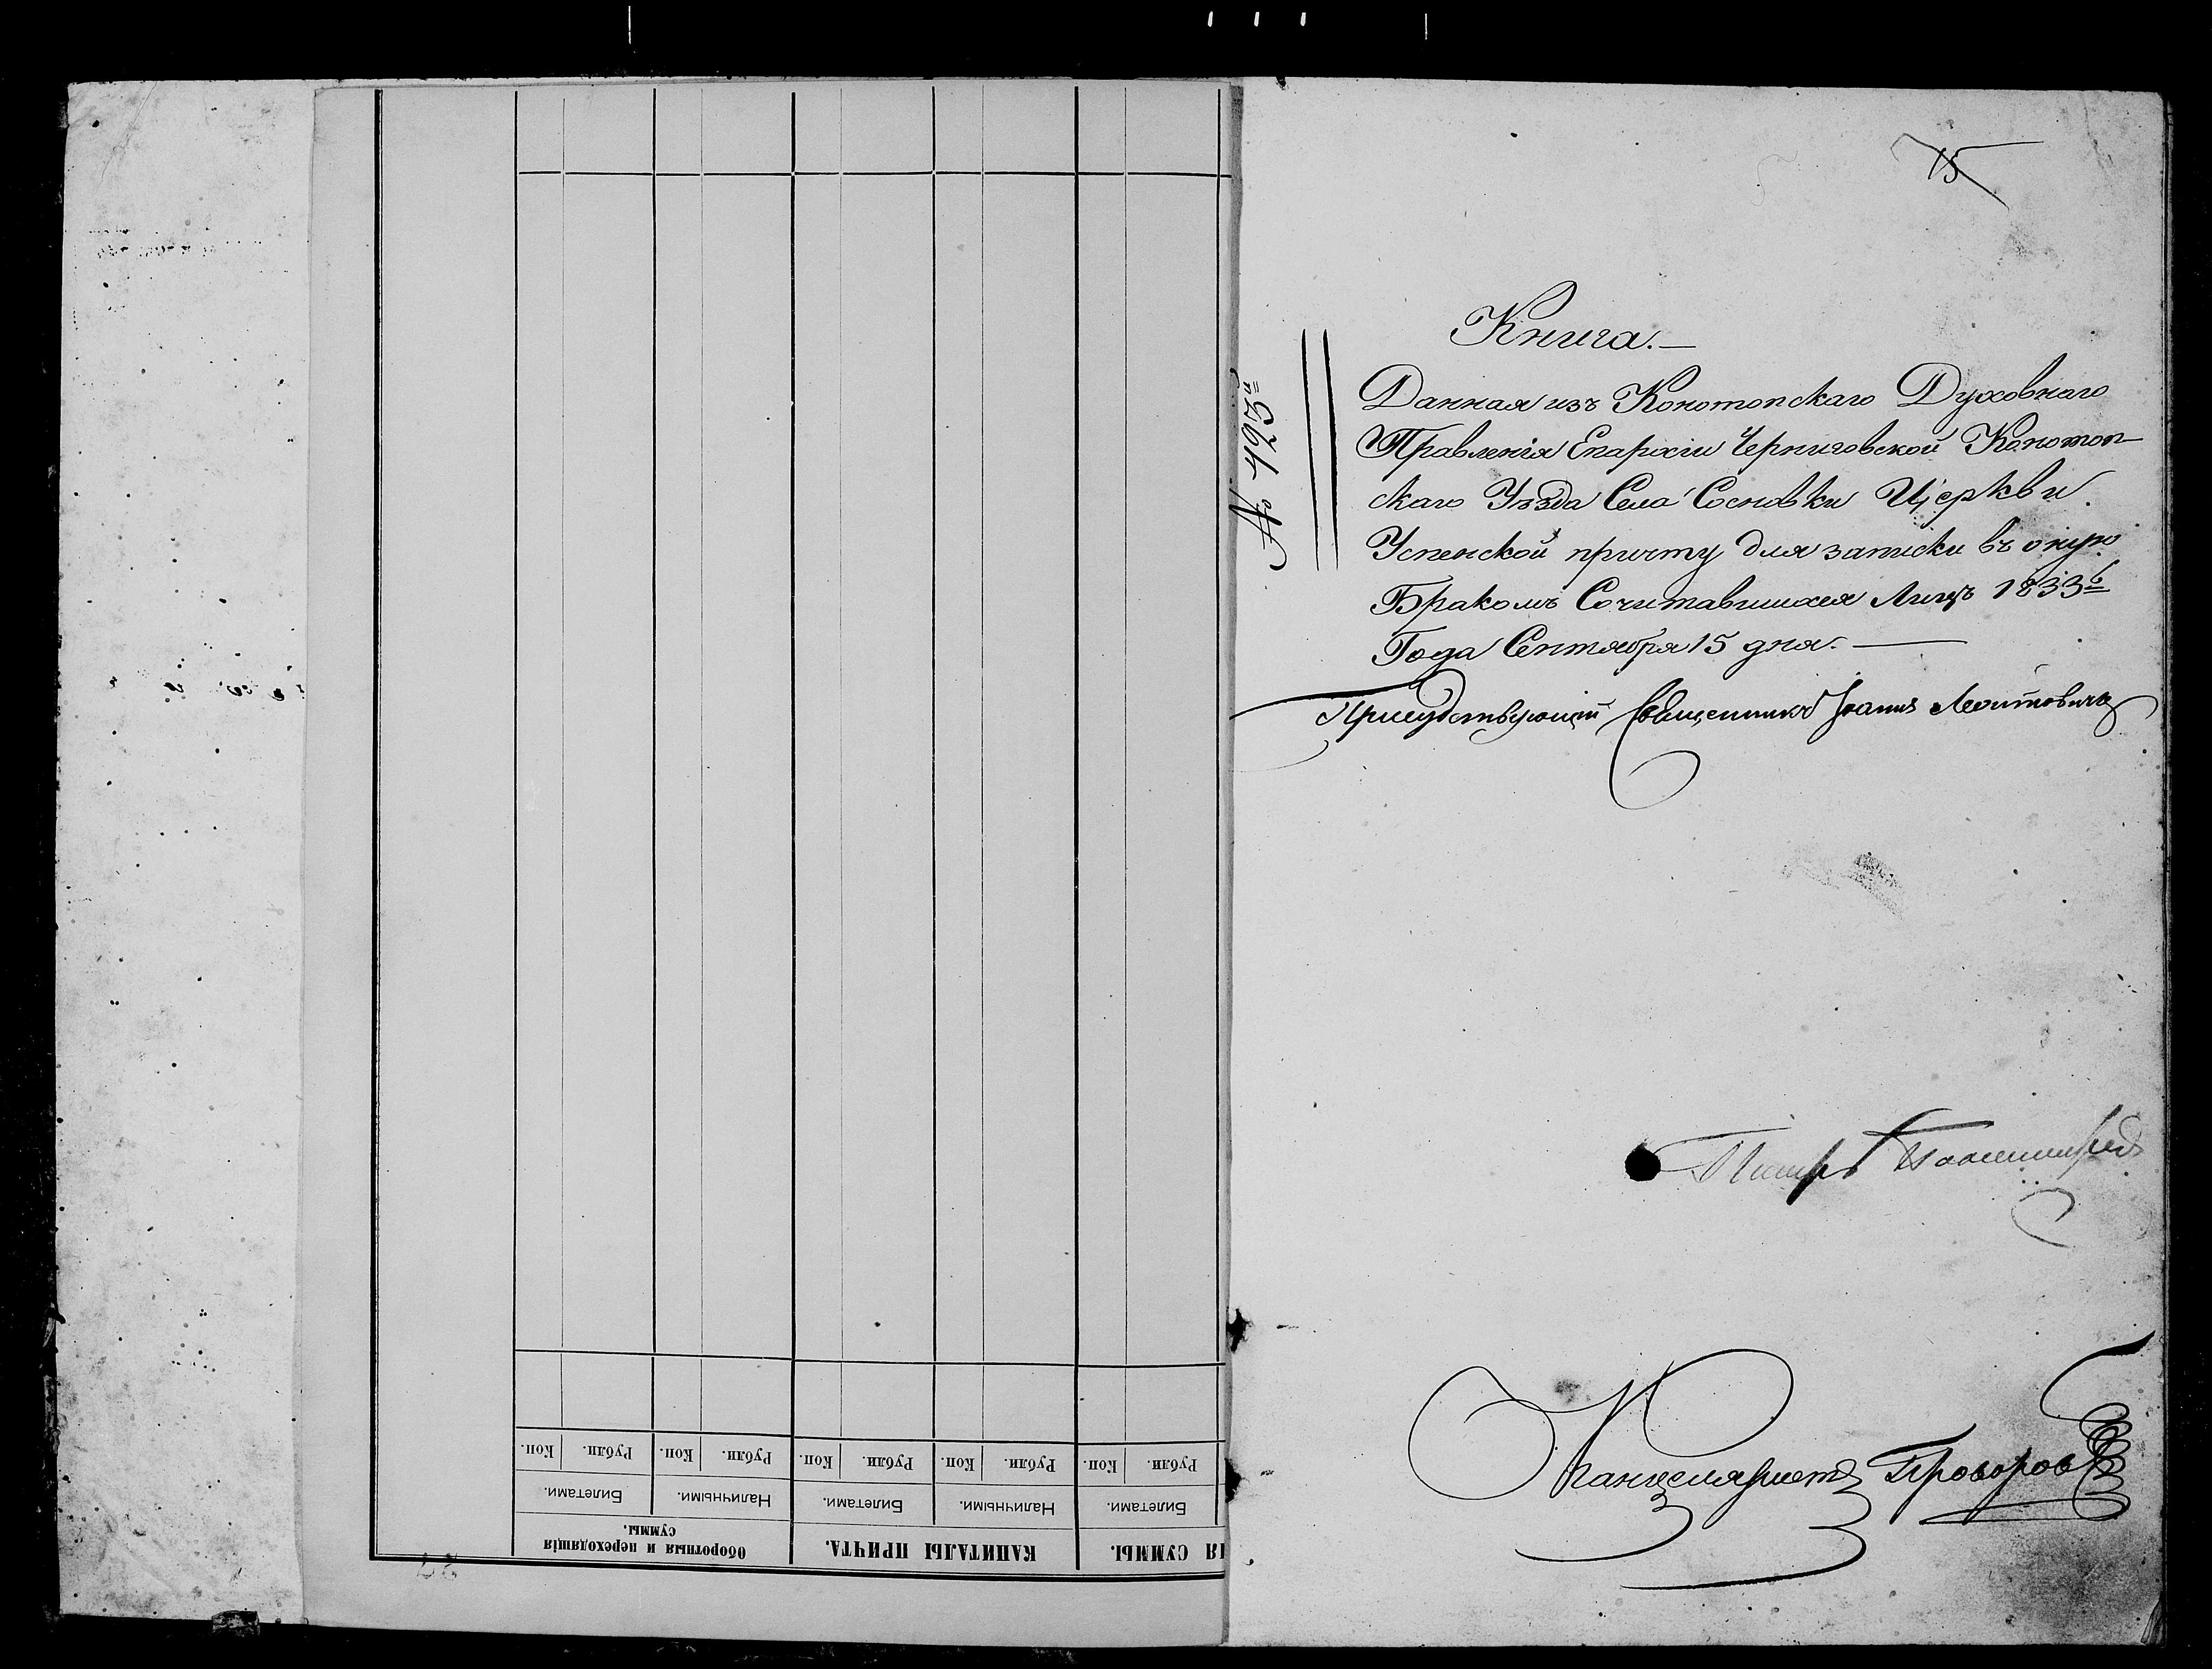 Коп.
Рубли.
Коп.
Рубли.
Коп.
Рубли.
Коп.
Рубли.
Коп.
Рубли.
Билетами.
Наличными.
Билетами.
Наличными.
Билетами.
Оборотныя и переходящія
суммы.
КАПИТАЛЫ ПРИЧТА.
ІЯ СУММЫ.
27
15
№ 423й
Книга.—
Данная изъ Конотопскаго Духовнаго
Правленія Епархіи Черниговской Конотоп-
скаго Уѣзда Села Сосновки Церкви
Успенской причту для записки въ оную
Бракомъ Сочитавшихся Лицъ 1833г
Года Сентября 15 дня.—
Присудствующій Священникъ Іоаннъ Леонтовичъ
Канцеляристъ Прохоровъ